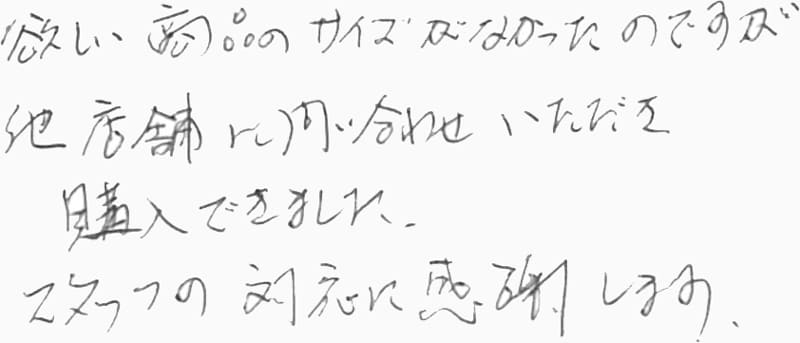 欲しい商品のサイズがなかったのですが
他店舗に問い合わせいただき
購入できました。
スタッフの対応に感謝します。